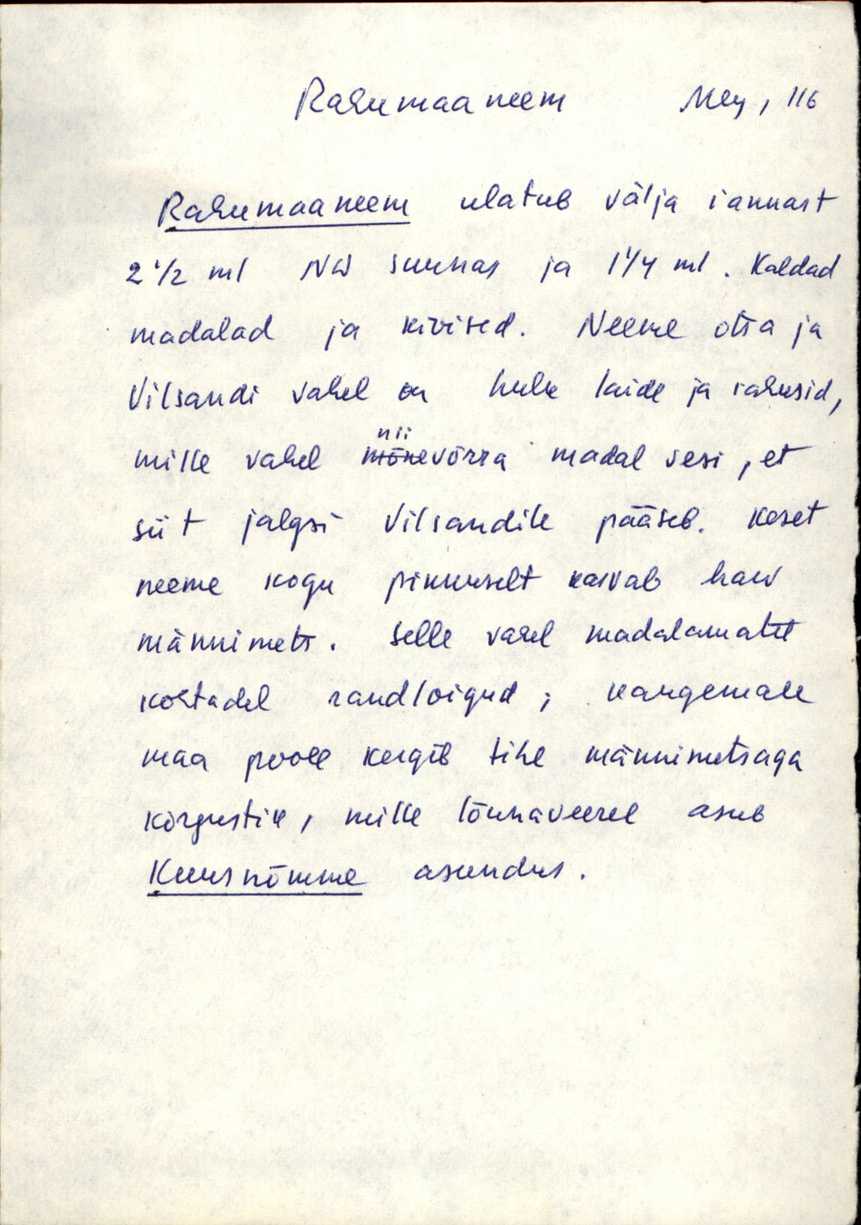 Rahumaa neem Mey, 116
Rahumaa neem ulatub välja rannast
2 1/2 ml NW suunas ja 1 1/4 ml. Kaldad
madalad ja kivised. Neeme otsa ja
Vilsandi vahel on hulk laide ja rahusid,
nii
mille vahel mõnevõrra madal vesi, et
siit jalgsi Vilsandile pääseb. Keset
neeme kogu pikkuselt kasvab harv
männimets. Selle vahel madalamatel
kohtadel randloigud; kaugemale
maa poole kergib tihe männimetsaga
kõrgustik, mille lõunaveerel asub
Kuusnõmme asundus.